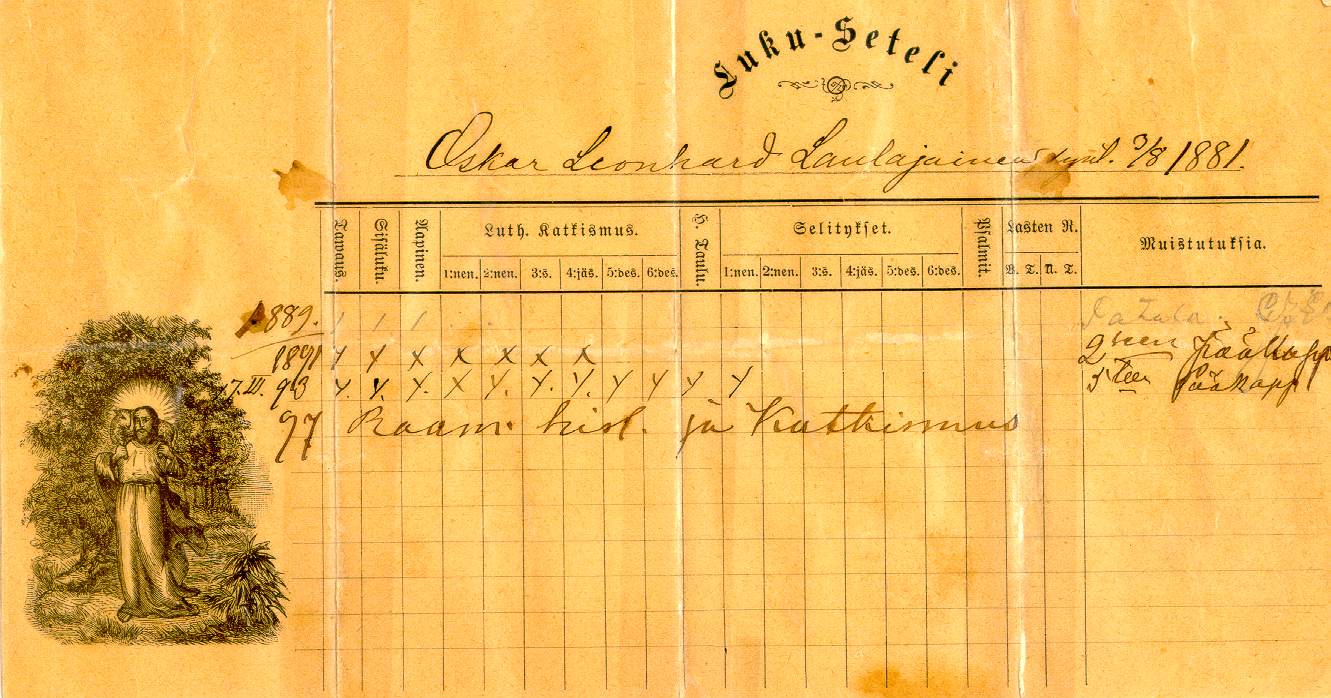 Luku-Seteli
Oskar Leonhard Laulajainen synt. 3/8 1881.
Tawaus. Sisäluku. Aapinen. Luth. Katkismus. H. Taulu. Selitykset. Psalmit. Lasten R. Muistutuksia.
1:nen. 2:nen. 3:s. 4:jäs. 5:des. 6:des. 1:nen. 2:nen. 3:s. 4:jäs. 5:des. 6:des. V. T. U. T.
1889. / / /
1891 x x x x x x x 2seen Pääkapp
17. III. 93 x. x. x. x x. x. x. x x x x 5teen Pääkapp
97 Raam. hist. ja Katkismus